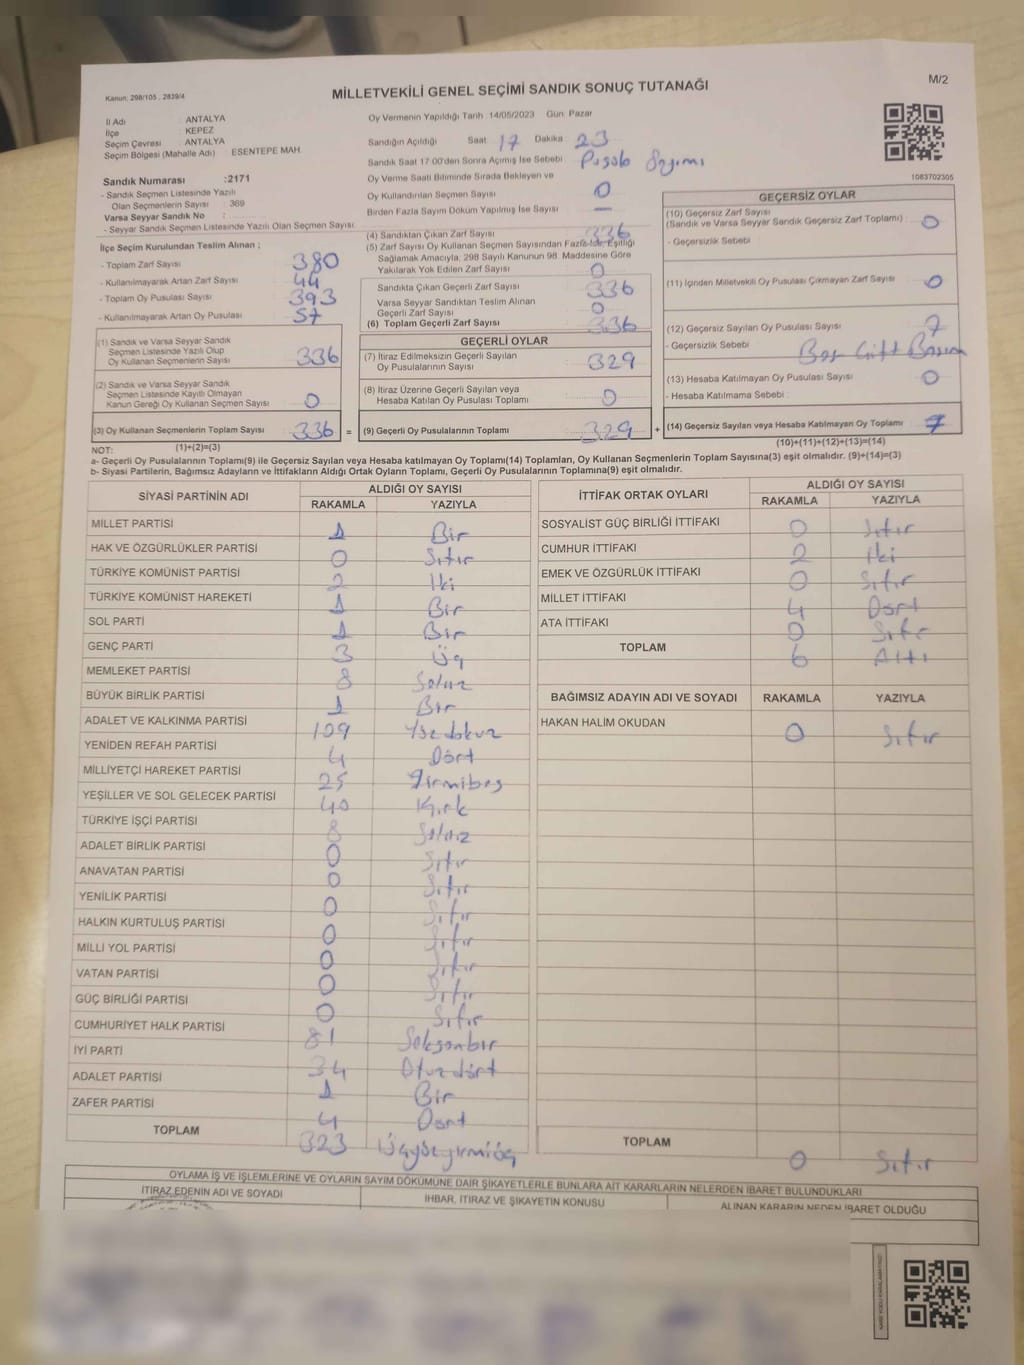 M/2
Kanun: 298/105 , 2839/4
MİLLETVEKİLİ GENEL SEÇİMİ SANDIK SONUÇ TUTANAĞI
İl Adı ANTALYA
İlçe KEPEZ
Seçim Çevresi ANTALYA
Seçim Bölgesi (Mahalle Adı) ESENTEPE MAH.
Sandık Numarası :2171
- Sandık Seçmen Listesinde Yazılı
Olan Seçmenlerin Sayısı : 369
Varsa Seyyar Sandık No :
- Seyyar Sandık Seçmen Listesinde Yazılı Olan Seçmen Sayısı:
Oy Vermenin Yapıldığı Tarih :14/05/2023 Gün: Pazar
Sandığın Açıldığı Saat 17 Dakika 23
Sandık Saat 17:00'den Sonra Açımış İse Sebebi Pusula Sayımı
Oy Verme Saati Bitiminde Sırada Bekleyen ve
Oy Kullandırılan Seçmen Sayısı 0
Birden Fazla Sayım Döküm Yapılmış İse Sayısı —
1083702305
İlçe Seçim Kurulundan Teslim Alınan ;
- Toplam Zarf Sayısı 380
- Kullanılmayarak Artan Zarf Sayısı 44
- Toplam Oy Pusulası Sayısı 393
- Kullanılmayarak Artan Oy Pusulası 57
(1) Sandık ve Varsa Seyyar Sandık
Seçmen Listesinde Yazılı Olup
Oy Kullanan Seçmenlerin Sayısı 336
(2) Sandık ve Varsa Seyyar Sandık
Seçmen Listesinde Kayıtlı Olmayan
Kanun Gereği Oy Kullanan Seçmen Sayısı 0
(3) Oy Kullanan Seçmenlerin Toplam Sayısı 336 =
(4) Sandıktan Çıkan Zarf Sayısı 336
(5) Zarf Sayısı Oy Kullanan Seçmen Sayısından Fazla İse, Eşitliği
Sağlamak Amacıyla; 298 Sayılı Kanunun 98. Maddesine Göre
Yakılarak Yok Edilen Zarf Sayısı 0
Sandıkta Çıkan Geçerli Zarf Sayısı 336
Varsa Seyyar Sandıktan Teslim Alınan
Geçerli Zarf Sayısı 0
(6) Toplam Geçerli Zarf Sayısı 336
GEÇERLİ OYLAR
(7) İtiraz Edilmeksizin Geçerli Sayılan
Oy Pusulalarının Sayısı 329
(8) İtiraz Üzerine Geçerli Sayılan veya
Hesaba Katılan Oy Pusulası Toplamı 0
(9) Geçerli Oy Pusulalarının Toplamı 329 +
GEÇERSİZ OYLAR
(10) Geçersiz Zarf Sayısı
(Sandık ve Varsa Seyyar Sandık Geçersiz Zarf Toplamı) : 0
- Geçersizlik Sebebi
(11) İçinden Milletvekili Oy Pusulası Çıkmayan Zarf Sayısı 0
(12) Geçersiz Sayılan Oy Pusulası Sayısı 7
- Geçersizlik Sebebi Boş Çift Basım
(13) Hesaba Katılmayan Oy Pusulası Sayısı 0
- Hesaba Katılmama Sebebi :
(14) Geçersiz Sayılan veya Hesaba Katılmayan Oy Toplamı 7
NOT: (1)+(2)=(3) (10)+(11)+(12)+(13)=(14)
a- Geçerli Oy Pusulalarının Toplamı(9) ile Geçersiz Sayılan veya Hesaba katılmayan Oy Toplamı(14) Toplamları, Oy Kullanan Seçmenlerin Toplam Sayısına(3) eşit olmalıdır. (9)+(14)=(3)
b- Siyasi Partilerin, Bağımsız Adayların ve İttifakların Aldığı Ortak Oyların Toplamı, Geçerli Oy Pusulalarının Toplamına(9) eşit olmalıdır.
SİYASİ PARTİNİN ADI ALDIĞI OY SAYISI
RAKAMLA YAZIYLA
MİLLET PARTİSİ 1 Bir
HAK VE ÖZGÜRLÜKLER PARTİSİ 0 Sıfır
TÜRKİYE KOMÜNİST PARTİSİ 2 İki
TÜRKİYE KOMÜNİST HAREKETİ 1 Bir
SOL PARTİ 1 Bir
GENÇ PARTİ 3 Üç
MEMLEKET PARTİSİ 8 Sekiz
BÜYÜK BİRLİK PARTİSİ 1 Bir
ADALET VE KALKINMA PARTİSİ 109 Yüzdokuz
YENİDEN REFAH PARTİSİ 4 Dört
MİLLİYETÇİ HAREKET PARTİSİ 25 Yirmibeş
YEŞİLLER VE SOL GELECEK PARTİSİ 40 Kırk
TÜRKİYE İŞÇİ PARTİSİ 8 Sekiz
ADALET BİRLİK PARTİSİ 0 Sıfır
ANAVATAN PARTİSİ 0 Sıfır
YENİLİK PARTİSİ 0 Sıfır
HALKIN KURTULUŞ PARTİSİ 0 Sıfır
MİLLİ YOL PARTİSİ 0 Sıfır
VATAN PARTİSİ 0 Sıfır
GÜÇ BİRLİĞİ PARTİSİ 0 Sıfır
CUMHURİYET HALK PARTİSİ 81 Seksenbir
İYİ PARTİ 34 Otuzdört
ADALET PARTİSİ 1 Bir
ZAFER PARTİSİ 4 Dört
TOPLAM 323 Üçyüzyirmiüç
İTTİFAK ORTAK OYLARI ALDIĞI OY SAYISI
RAKAMLA YAZIYLA
SOSYALİST GÜÇ BİRLİĞİ İTTİFAKI 0 Sıfır
CUMHUR İTTİFAKI 2 İki
EMEK VE ÖZGÜRLÜK İTTİFAKI 0 Sıfır
MİLLET İTTİFAKI 4 Dört
ATA İTTİFAKI 0 Sıfır
TOPLAM 6 Altı
BAĞIMSIZ ADAYIN ADI VE SOYADI RAKAMLA YAZIYLA
HAKAN HALİM OKUDAN 0 Sıfır
TOPLAM 0 Sıfır
OYLAMA İŞ VE İŞLEMLERİNE VE OYLARIN SAYIM DÖKÜMÜNE DAİR ŞİKAYETLERLE BUNLARA AİT KARARLARIN NELERDEN İBARET BULUNDUKLARI
İTİRAZ EDENİN ADI VE SOYADI İHBAR, İTİRAZ VE ŞİKAYETİN KONUSU ALINAN KARARIN NEDEN İBARET OLDUĞU